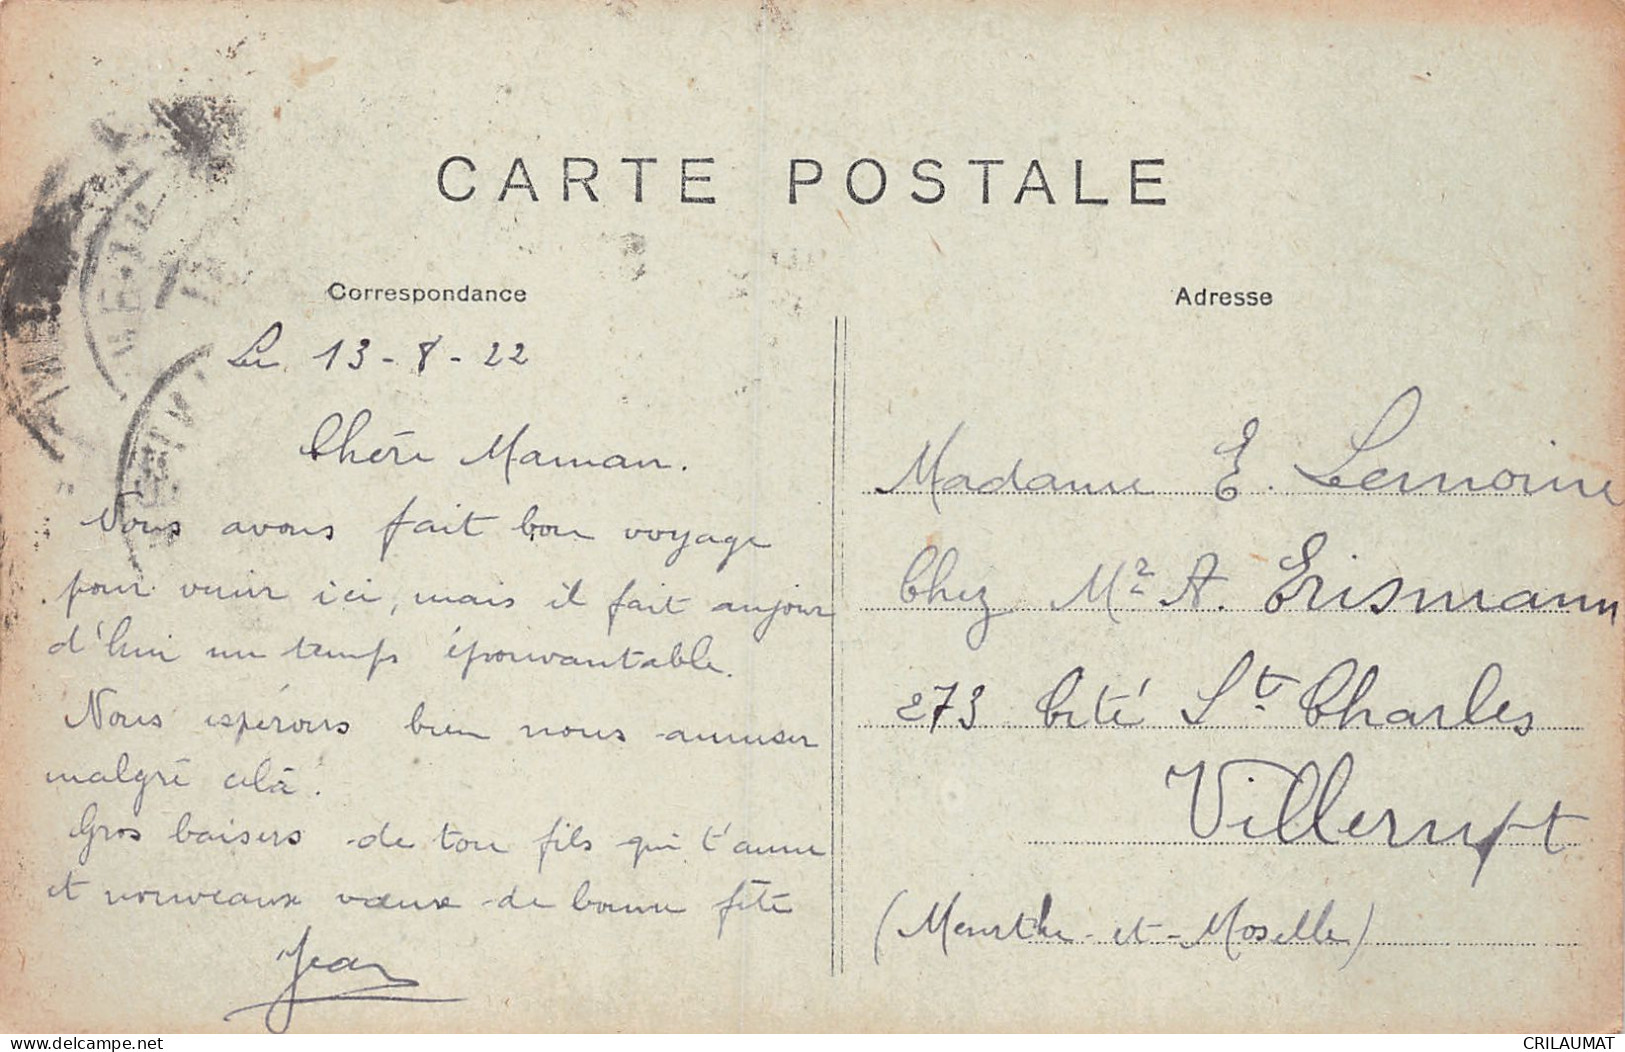 CARTE POSTALE
Correspondance
Le 13-8-22
Chère Maman.
Nous avons fait bon voyage
pour venir ici, mais il fait aujour
d'hui un temps épouvantable.
Nous espérons bien nous amuser
malgré celà.
Gros baisers de ton fils qui t'aime
et nouveaux vœux de bonne fête
Jean
Adresse
Madame E. Lemoine
Chez Mr A. Erismann
273 Cité St Charles
Villerupt
(Meurthe-et-Moselle)
delcampe.net
CRILAUMAT